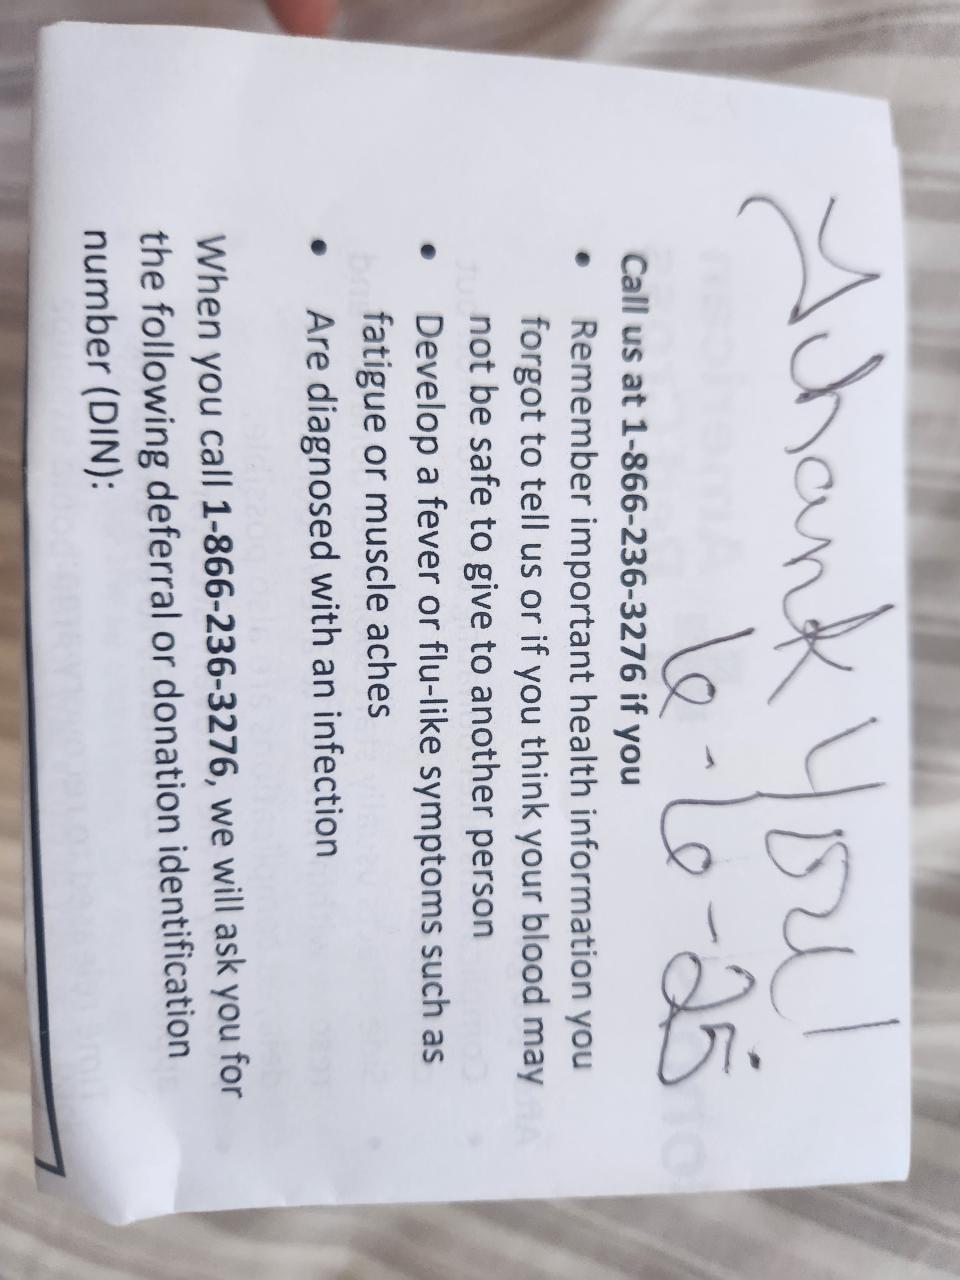 Thank you!
6-6-25
Call us at 1-866-236-3276 if you
• Remember important health information you
forgot to tell us or if you think your blood may
not be safe to give to another person
• Develop a fever or flu-like symptoms such as
fatigue or muscle aches
• Are diagnosed with an infection
When you call 1-866-236-3276, we will ask you for
the following deferral or donation identification
number (DIN):